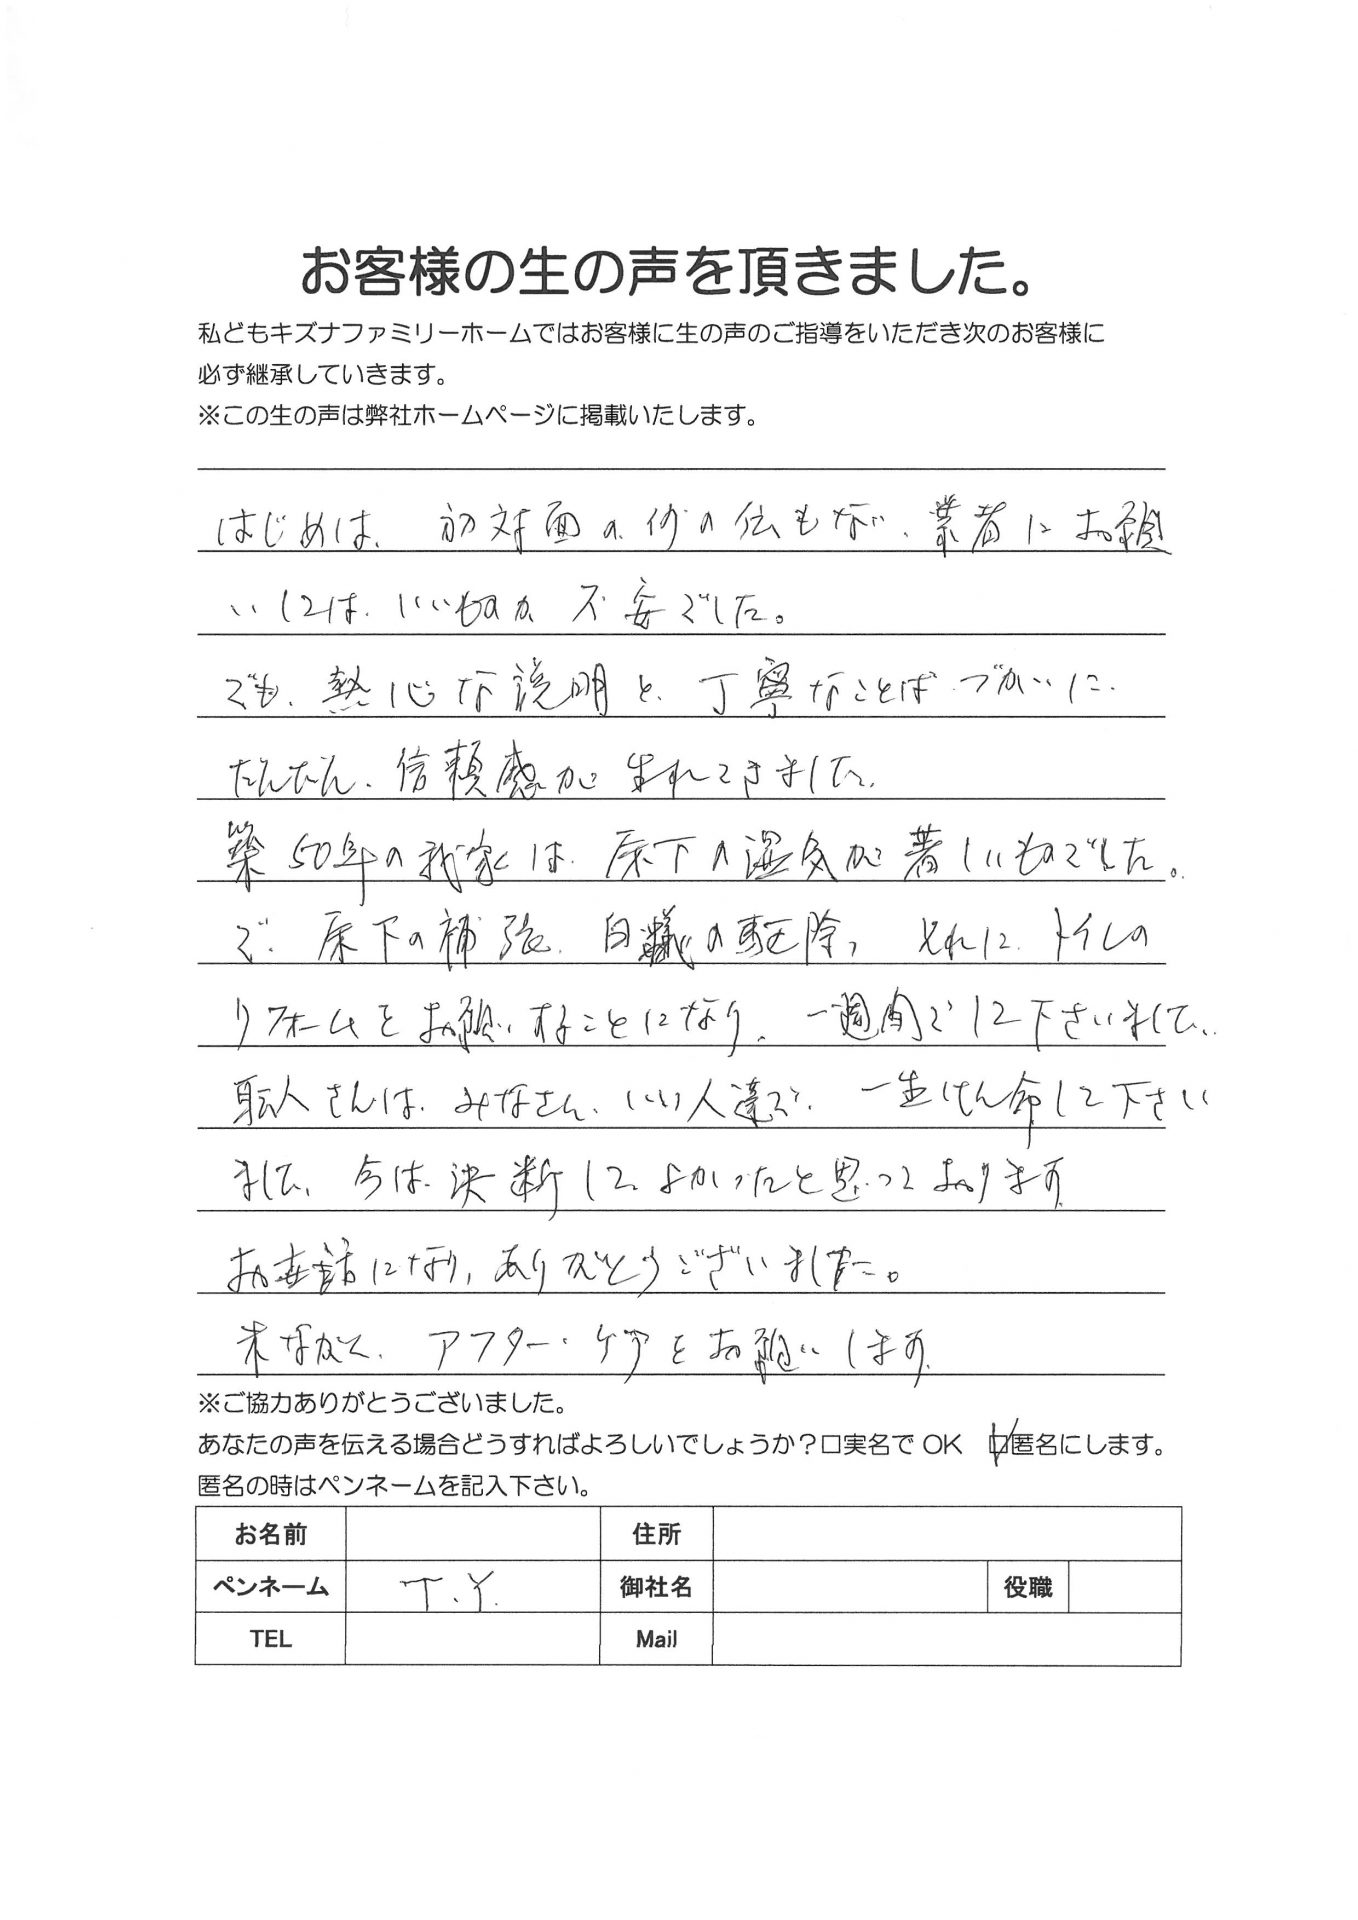 お客様の生の声を頂きました。
私どもキズナファミリーホームではお客様に生の声のご指導をいただき次のお客様に
必ず継承していきます。
※この生の声は弊社ホームページに掲載いたします。
はじめは、初対面の、何の伝もない、業者にお願
いしては、いいものか不安でした。
でも、熱心な説明と、丁寧なことばづかいに、
だんだん、信頼感が生れてきました。
築50年の我家は、床下の湿気が著しいものでした。
で、床下の補強、白蟻の駆除、それに、トイレの
リフォームをお願いすることになり、一週間でして下さいました。
職人さんは、みなさん、いい人達で、一生けん命して下さい
まして、今は、決断して、よかったと思っております
お世話になり、ありがとうございました。
末ながく、アフター・ケアをお願いします。
※ご協力ありがとうございました。
あなたの声を伝える場合どうすればよろしいでしょうか？□実名でOK □匿名にします。
匿名の時はペンネームを記入下さい。
お名前 住所
ペンネーム T.Y. 御社名 役職
TEL Mail